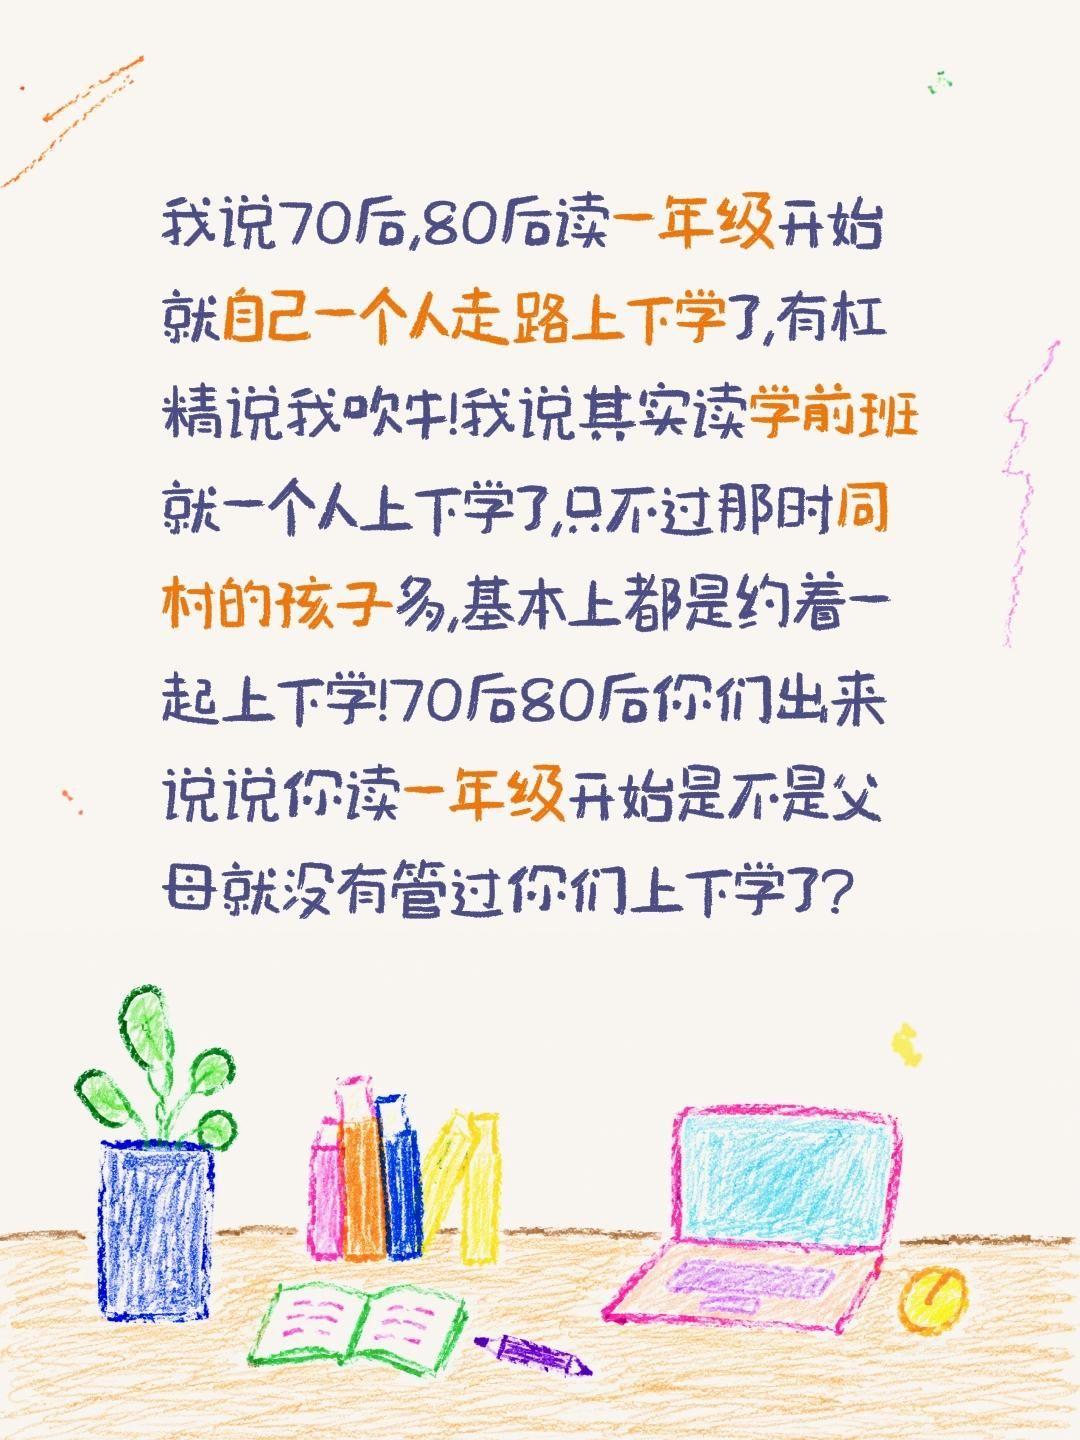 我说70后,80后读一年级开始
就自己一个人走路上下学了,有杠
精说我吹牛!我说其实读学前班
就一个人上下学了,只不过那时同
村的孩子多,基本上都是约着一
起上下学!70后80后你们出来
说说你读一年级开始是不是父
母就没有管过你们上下学了?